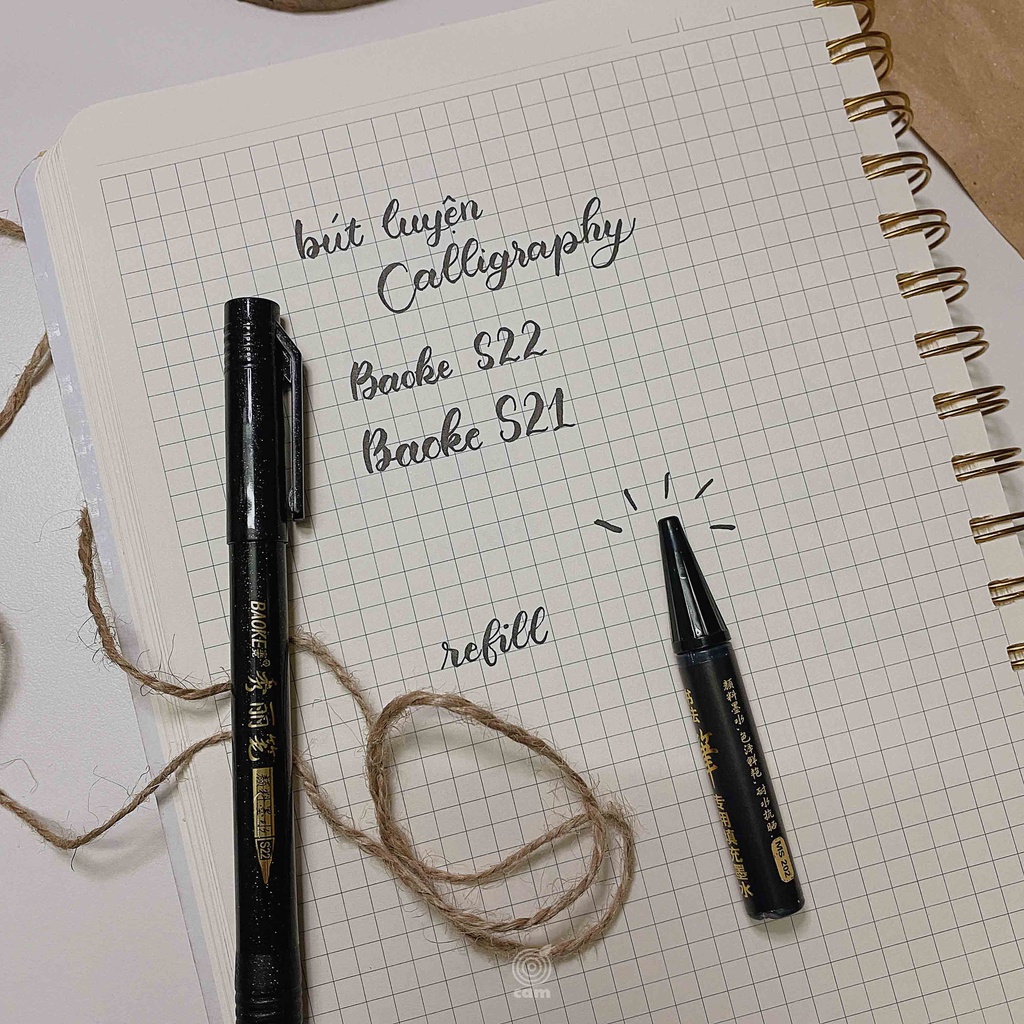 bút luyện
Calligraphy
Baoke S22
Baoke S21
refill
BAOKE
秀丽笔
S22
顏料墨水·色澤鮮艳·耐水抗晒
MS 202
专用填充墨水
cam